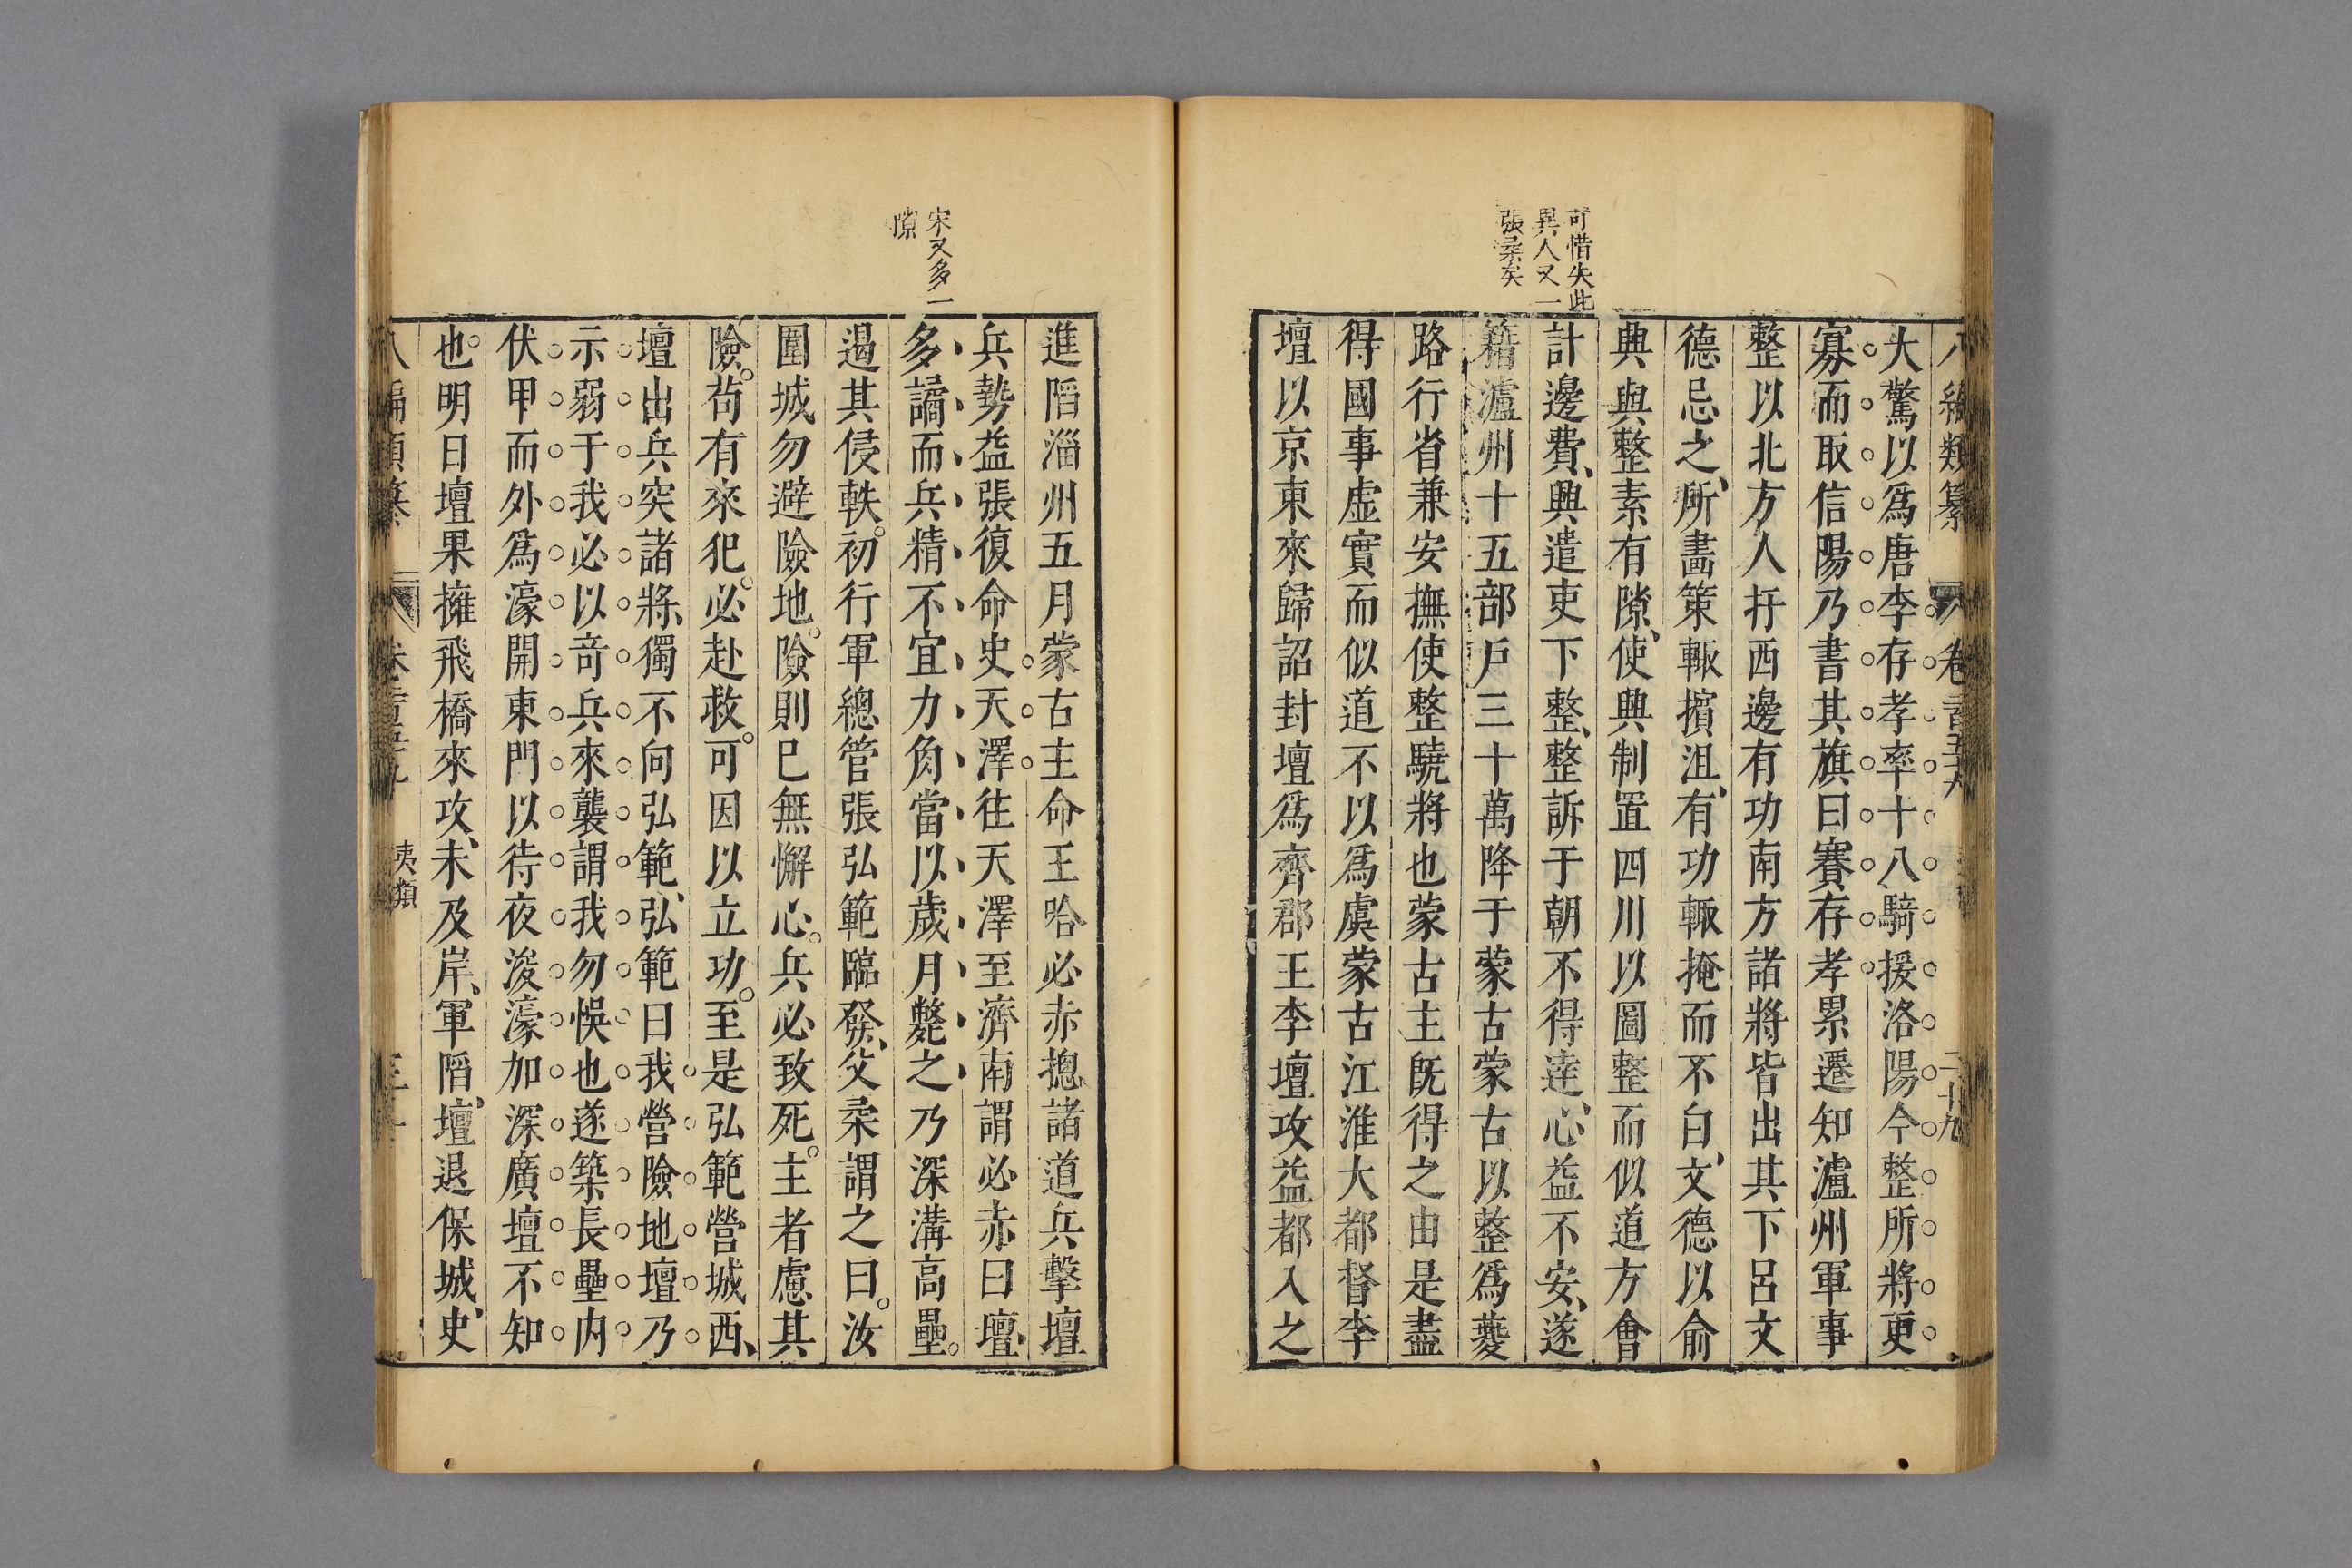 可惜失此
異人又一
張柔矣
大驚以爲唐李存孝率十八騎援洛陽今整所將更
寡而取信陽乃書其旗曰賽存孝累遷知瀘州軍事
整以北方人扞西邊有功南方諸將皆出其下呂文
德忌之所畫策輒擯沮有功輒掩而不白文德以俞
興與整素有隙使興制置四川以圖整而似道方會
計邊費興遣吏下整整訴于朝不得達心益不安遂
籍瀘州十五部戶三十萬降于蒙古蒙古以整爲夔
路行省兼安撫使整驍將也蒙古主旣得之由是盡
得國事虛實而似道不以爲虞蒙古江淮大都督李
璮以京東來歸詔封璮爲齊郡王李璮攻益都入之
宋又多一
隙
進陷淄州五月蒙古主命王哈必赤摠諸道兵擊璮
兵勢益張復命史天澤往天澤至濟南謂必赤曰璮
多譎而兵精不宜力角當以歲月斃之乃深溝高壘
遏其侵軼初行軍總管張弘範臨發父柔謂之曰汝
圍城勿避險地險則已無懈心兵必致死主者慮其
險苟有來犯必赴救可因以立功至是弘範營城西
璮出兵突諸將獨不向弘範弘範曰我營險地璮乃
示弱于我必以奇兵來襲謂我勿悞也遂築長壘内
伏甲而外爲濠開東門以待夜浚濠加深廣璮不知
也明日璮果擁飛橋來攻未及岸軍陷璮退保城史